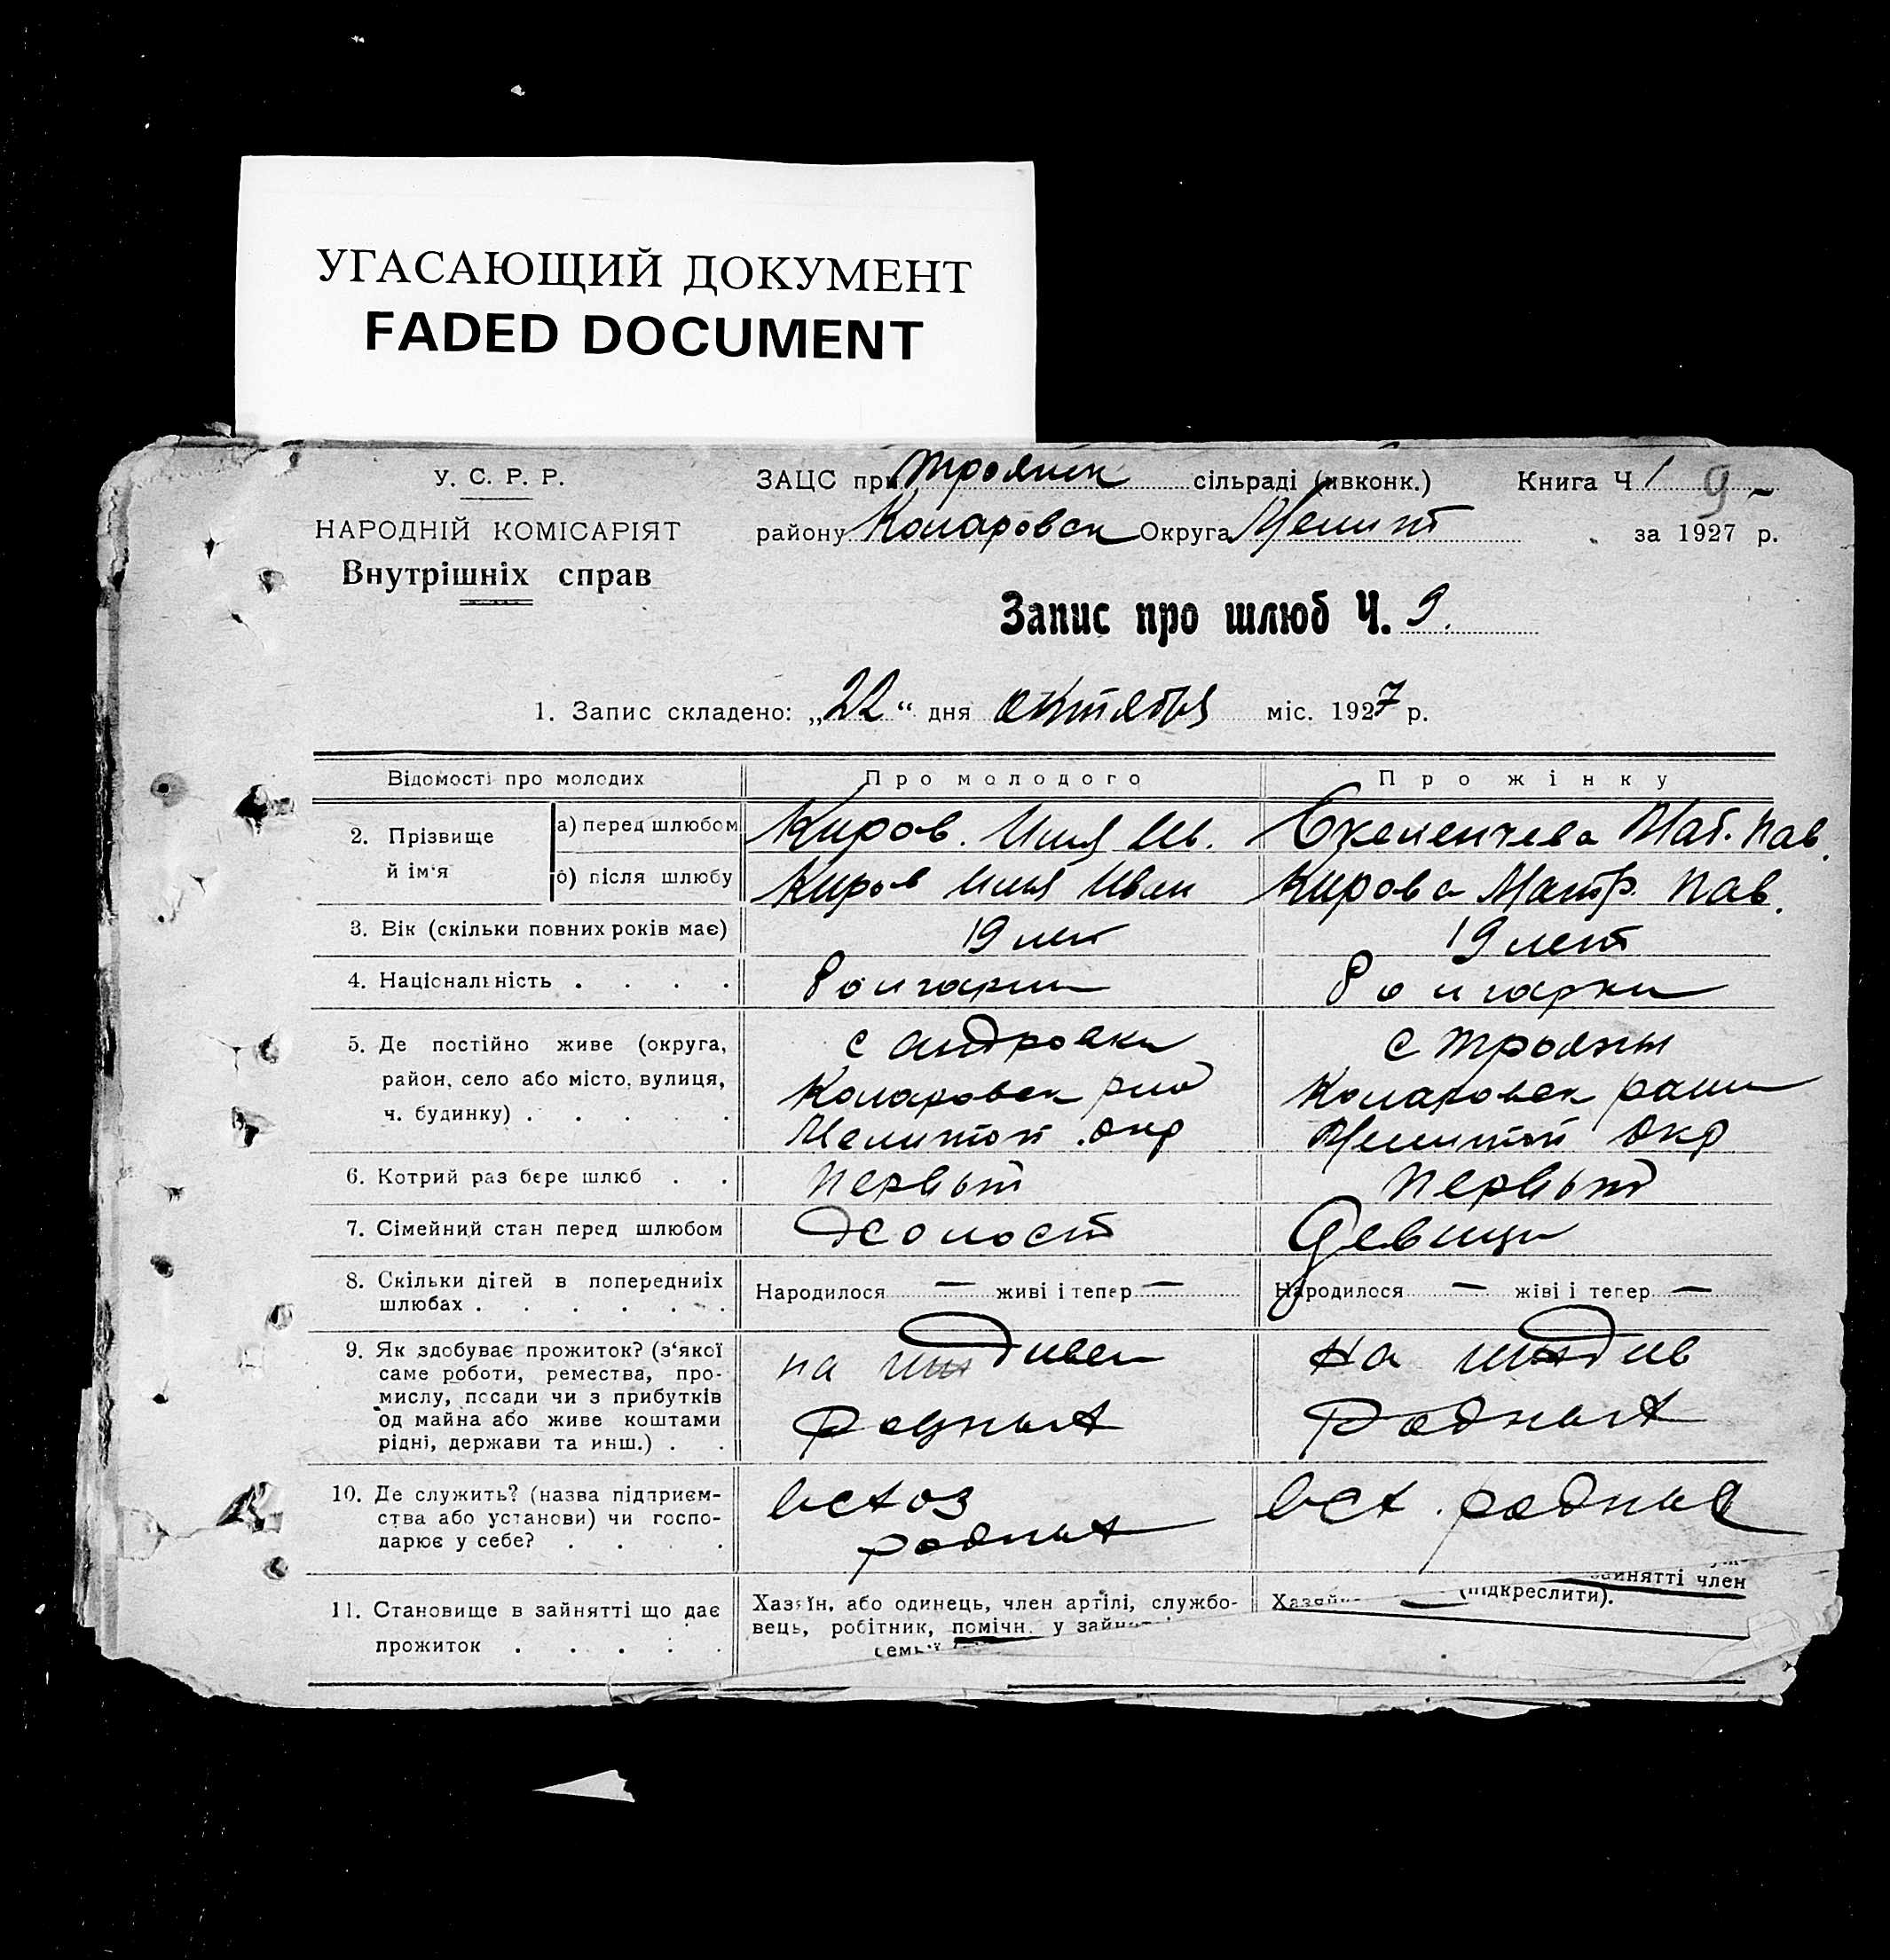 УГАСАЮЩИЙ ДОКУМЕНТ
FADED DOCUMENT
У. С. Р. Р.
НАРОДНІЙ КОМІСАРІЯТ
Внутрішніх справ
ЗАЦС при Троянск сільраді (ивконк.) Книга Ч 1 9
району Коларовск Округа Мелит за 1927 р.
Запис про шлюб Ч. 9.
1. Запис складено: „22“ дня октября міс. 1927 р.
Відомості про молодих Про молодого Про жінку
2. Прізвище й ім‘я
а) перед шлюбом Киров. Илья Ив. Мат. Пав.
б) після шлюбу Киров Илья Иван Кирова Матр. Пав.
3. Вік (скільки повних років має) 19 лет 19 лет
4. Національність . . . . болгарин болгарки
5. Де постійно живе (округа, с Андровки с Трояны
район, село або місто, вулиця, Коларовск Коларовск
ч. будинку) . . . . . Мелитоп. окр Мелитоп окр
6. Котрий раз бере шлюб . . Первый Первый
7. Сімейний стан перед шлюбом Холост Девица
8. Скільки дітей в попередниіх
шлюбах . . . . . . Народилося — живі і тепер — Народилося — жіві і тепер —
9. Як здобуває прожиток? (з‘якої на иждивен на иждив
саме роботи, ремества, про-
мислу, посади чи з прибутків
од майна або живе коштами Родных Родных
рідні, держави та инш.) . .
10. Де служить? (назва підприєм- в сх оз в сх. родных
ства або установи) чи госпо-
дарює у себе? . . . . родных
11. Становище в зайнятті що дає
прожиток . . . . .
Хазяїн, або одинець, член артілі, службо-
вець, робітник, помічн. у
зайнятті член
(підкреслити).